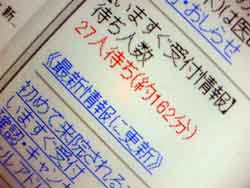 お知らせ
いますぐ受付情報】
待ち人数
27人待ち(約162分)
《最新情報に更新》
初めて来院される
いますぐ受付
確認・キャン